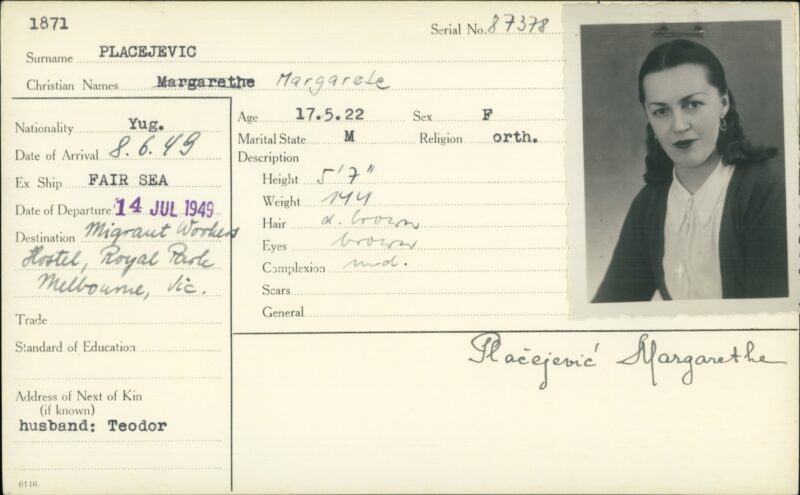 1871
Serial No. 87378
Surname PLACEJEVIC
Christian Names Margarethe Margarete
Nationality Yug.
Date of Arrival 8.6.49
Ex Ship FAIR SEA
Date of Departure 14 JUL 1949
Destination Migrant Workers
Hostel, Royal Park
Melbourne, Vic.
Trade
Standard of Education
Address of Next of Kin
(if known)
husband: Teodor
6116
Age 17.5.22 Sex F
Marital State M Religion orth.
Description
Height 5'7"
Weight 144
Hair d. brown
Eyes brown
Complexion md.
Scars
General
Plačejević Margarethe